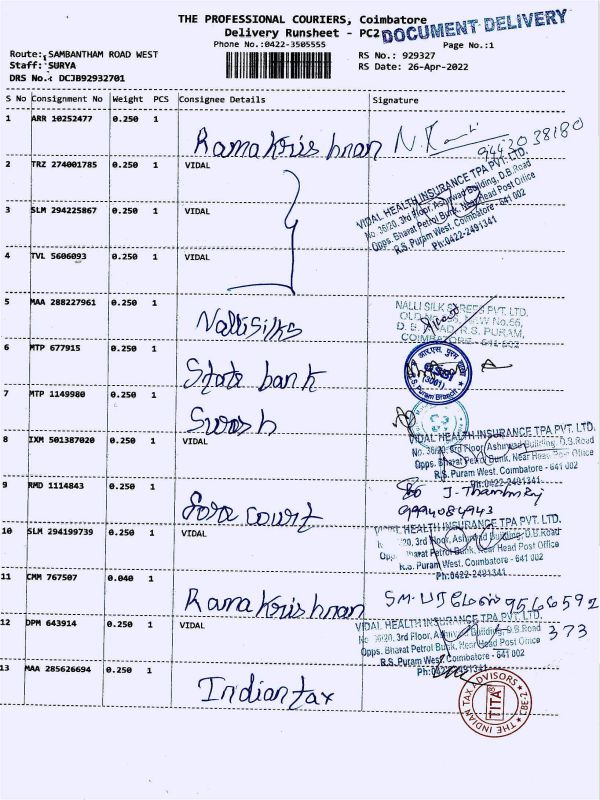 THE PROFESSIONAL COURIERS, Coimbatore
Delivery Runsheet - PC2
DOCUMENT DELIVERY
Phone No.:0422-3505555
Page No.:1
Route: SAMBANTHAM ROAD WEST
RS No.: 929327
Staff: SURYA
RS Date: 26-Apr-2022
DRS No.: DCJB92932701
S No Consignment No Weight PCS Consignee Details Signature
1 ARR 10252477 0.250 1
Ramakrishnan
9442038180
2 TRZ 274001785 0.250 1 VIDAL
VIDAL HEALTH INSURANCE TPA PVT. LTD.
No. 36/20, 3rd Floor, Ashirwad Building, D.B.Road
Opps. Bharat Petrol Bunk, Near Head Post Office
R.S. Puram West, Coimbatore - 641 002
Ph:0422-2491341
3 SLM 294225867 0.250 1 VIDAL
4 TVL 5606093 0.250 1 VIDAL
5 MAA 288227961 0.250 1
Nallisilks
NALLI SILK SAREES PVT. LTD.
D. B. ROAD, R.S. PURAM,
COIMBATORE - 641 002
6 MTP 677915 0.250 1
State bank
7 MTP 1149980 0.250 1
Suresh
8 IXM 501387020 0.250 1 VIDAL
VIDAL HEALTH INSURANCE TPA PVT. LTD.
No. 36/20, 3rd Floor, Ashirwad Building, D.B.Road
Opps. Bharat Petrol Bunk, Near Head Post Office
R.S. Puram West, Coimbatore - 641 002
Ph:0422-2491341
9 RMD 1114843 0.250 1
court
9994084943
10 SLM 294199739 0.250 1 VIDAL
VIDAL HEALTH INSURANCE TPA PVT. LTD.
36/20, 3rd Floor, Ashirwad Building, D.B.Road
Opps. Bharat Petrol Bunk, Near Head Post Office
R.S. Puram West, Coimbatore - 641 002
Ph:0422-2491341
11 CMM 767507 0.040 1
Ramakrishnan
9566592
373
12 DPM 643914 0.250 1 VIDAL
VIDAL HEALTH INSURANCE TPA PVT. LTD.
No. 36/20, 3rd Floor, Ashirwad Building, D.B.Road
Opps. Bharat Petrol Bunk, Near Head Post Office
R.S. Puram West, Coimbatore - 641 002
Ph:0422-2491341
13 MAA 285626694 0.250 1
Indian tax
THE INDIAN TAX ADVISORS
TITA
CBE-2